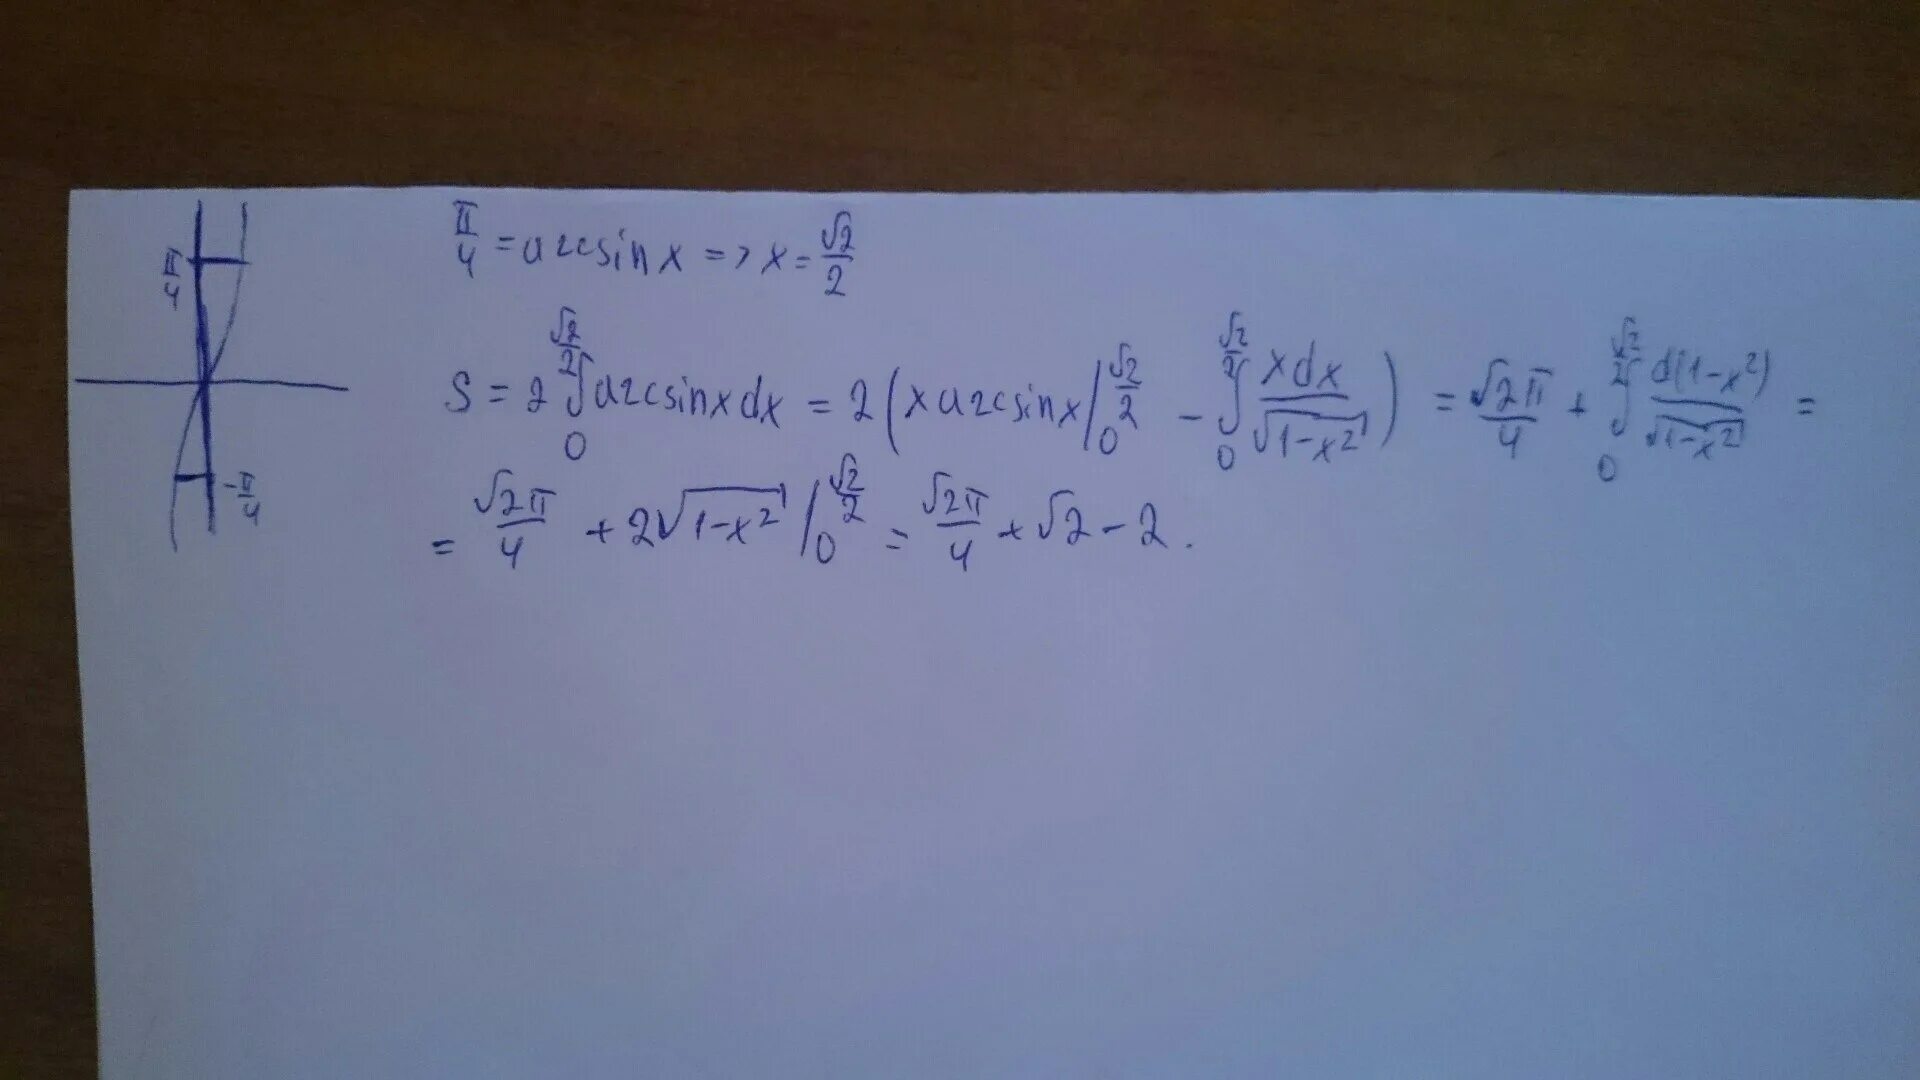 π/4 = arcsin x => x = √2/2
S = 2 ∫₀^(√2/2) arcsinx dx = 2 ( x arcsinx |₀^(√2/2) − ∫₀^(√2/2) xdx/√(1−x²) ) = √2π/4 + ∫₀^(√2/2) d(1−x²)/√(1−x²) =
= √2π/4 + 2√(1−x²) |₀^(√2/2) = √2π/4 + √2 − 2.
π/4
−π/4